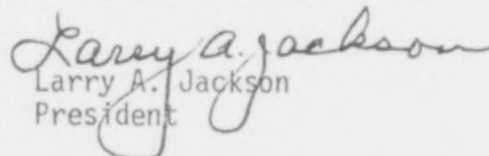 Larry A. Jackson
Larry A. Jackson
President